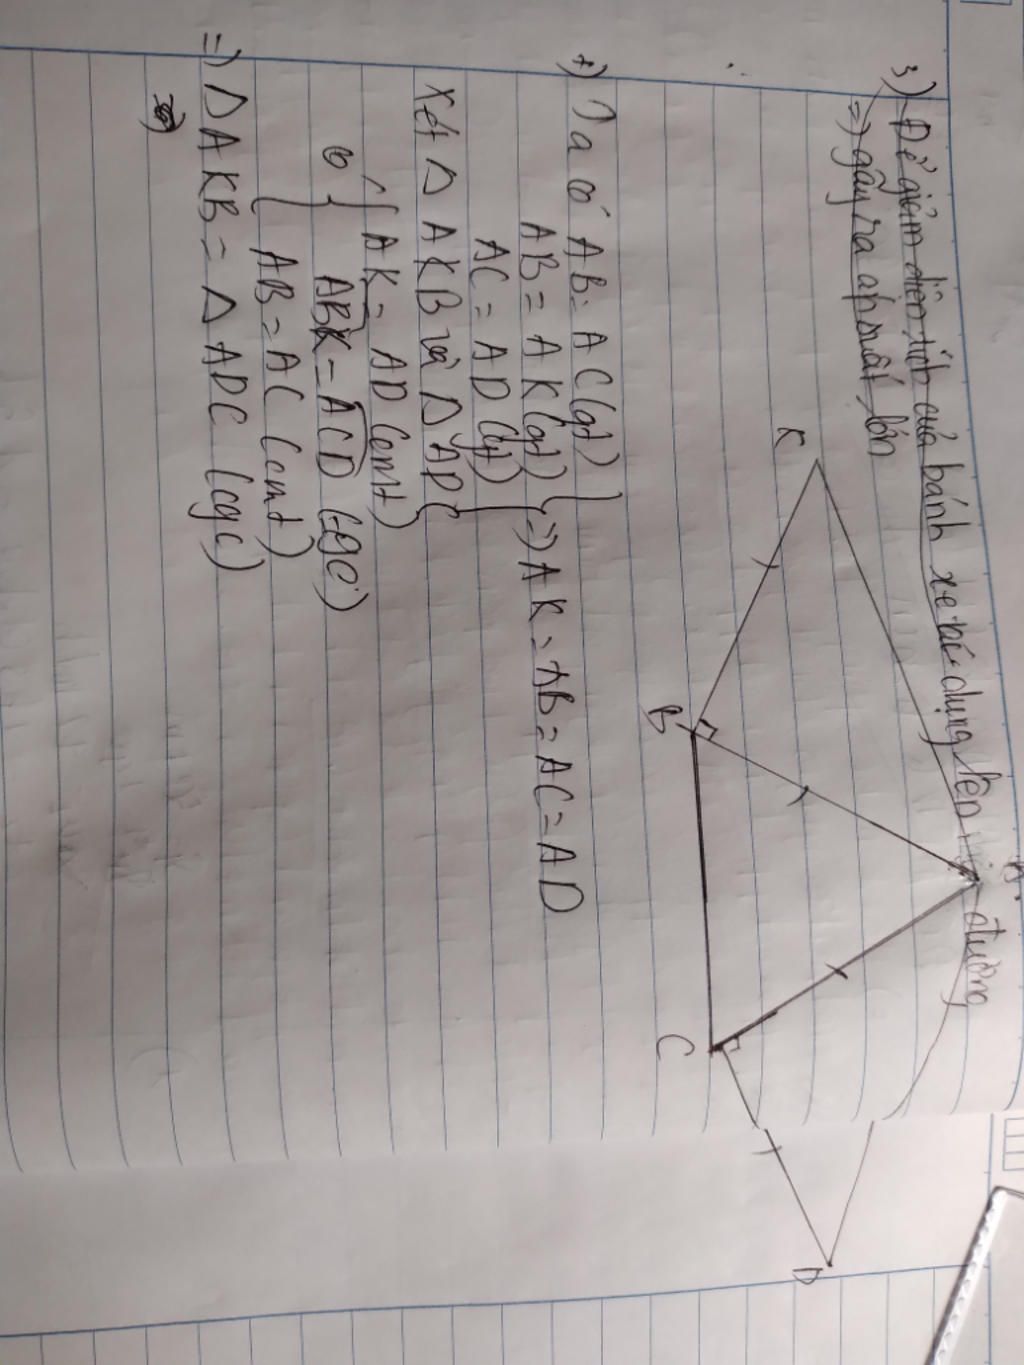 3) Để giảm diện tích của bánh xe tác dụng lên đường
=) gây ra áp suất lớn
A
K
B
C
D
+) Ta có AB = AC (gt)
AB = AK (gt) =) AK = AB = AC = AD
AC = AD (gt)
Xét Δ AKB và Δ ADC
AK = AD (cmt)
ABK = ACD (=90°)
AB = AC (cmt)
=) Δ AKB = Δ ADC (cgc)